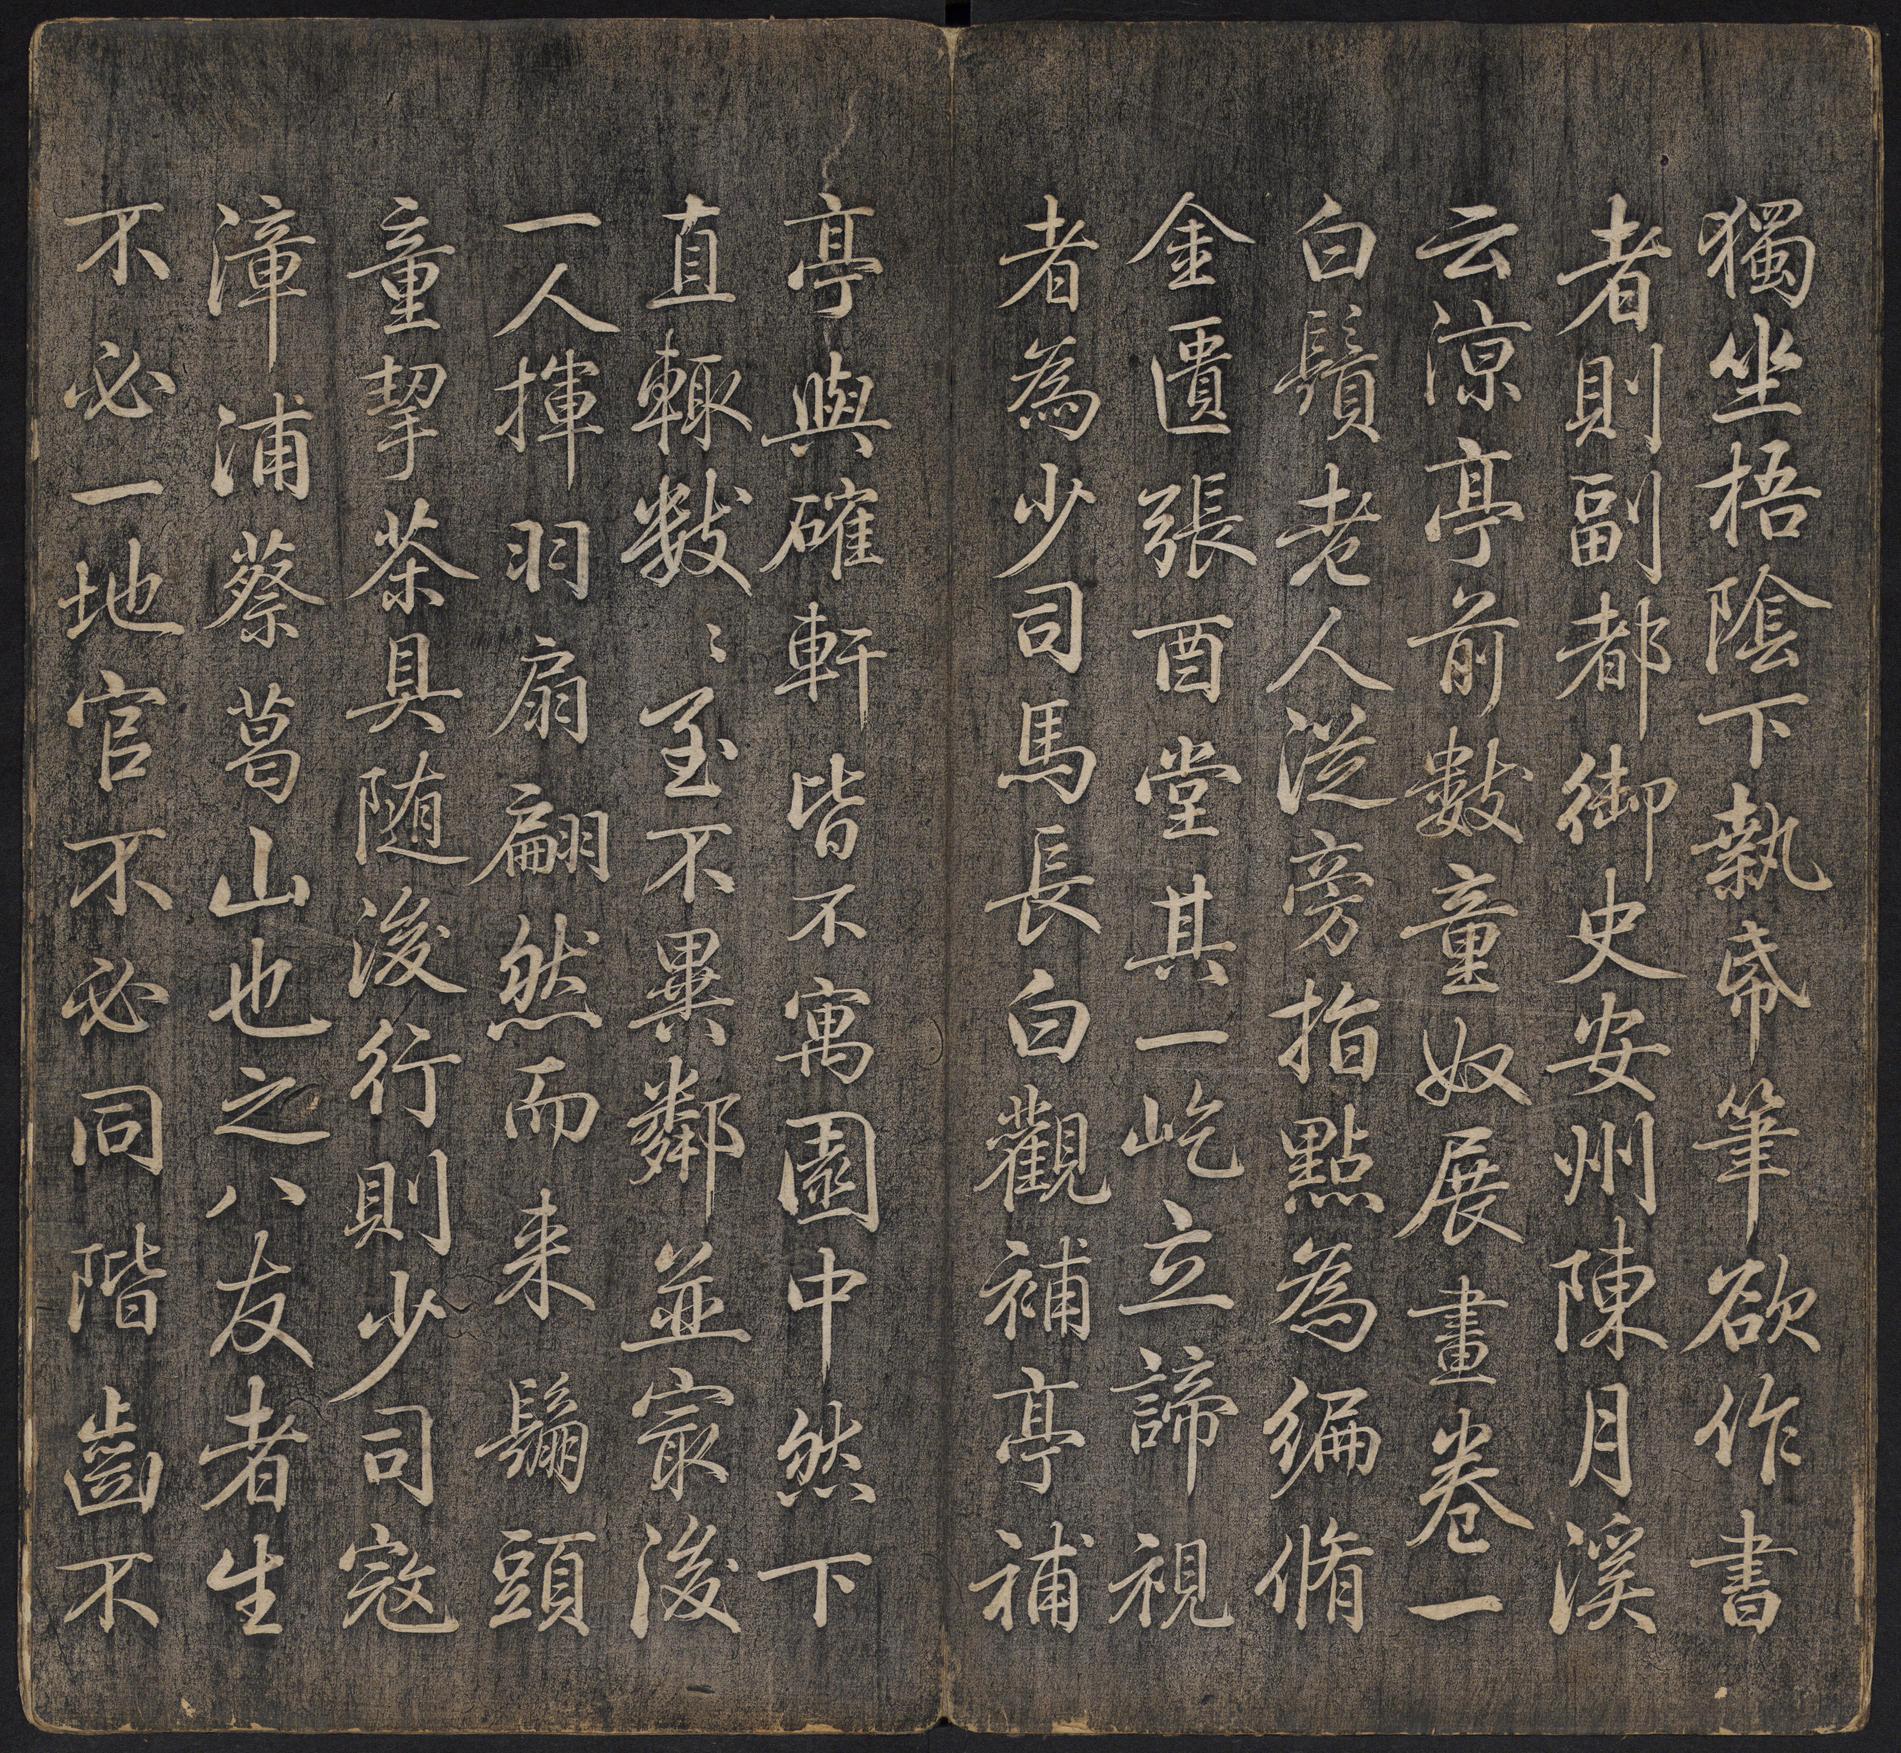 獨坐梧陰下執帋筆欲作書
者則副都御史安州陳月溪
云涼亭前數童奴展畫卷一
白鬚老人從旁指點為編脩
金匱張酉堂其一屹立諦視
者為少司馬長白觀補亭補
亭與確軒皆不寓園中然下
直輒數〻至不異鄰並最後
一人揮羽扇翩然而来鬅頭
童挈茶具随後行則少司寇
漳浦蔡葛山也之八友者生
不必一地官不必同階齒不